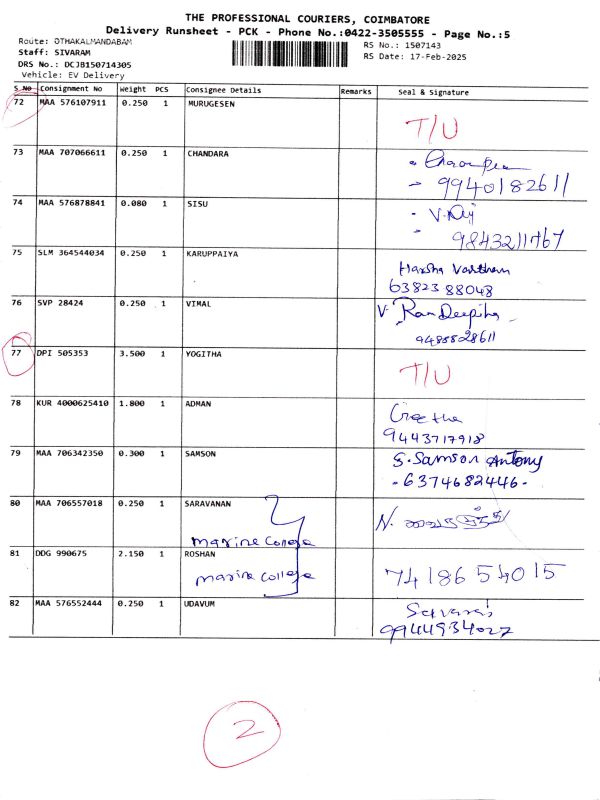 THE PROFESSIONAL COURIERS, COIMBATORE
Delivery Runsheet - PCK - Phone No.:0422-3505555 - Page No.:5
Route: OTHAKALMANDABAM
RS No.: 1507143
Staff: SIVARAM
RS Date: 17-Feb-2025
DRS No.: DCJB150714305
Vehicle: EV Delivery
S No Consignment No Weight PCS Consignee Details Remarks Seal & Signature
72 MAA 576107911 0.250 1 MURUGESEN
T/U
73 MAA 707066611 0.250 1 CHANDARA
9940182611
74 MAA 576878841 0.080 1 SISU
9843211767
75 SLM 364544034 0.250 1 KARUPPAIYA
Harsha Vardhan
63823 88048
76 SVP 28424 0.250 1 VIMAL
V. Ram Deepika
9488828611
77 DPI 505353 3.500 1 YOGITHA
T/U
78 KUR 4000625410 1.800 1 ADMAN
Geetha
9443717918
79 MAA 706342350 0.300 1 SAMSON
S. Samson Antony
- 6374682446 -
80 MAA 706557018 0.250 1 SARAVANAN
Marine College
N.
81 DDG 990675 2.150 1 ROSHAN
Marine College
7418654015
82 MAA 576552444 0.250 1 UDAVUM
9944934027
2